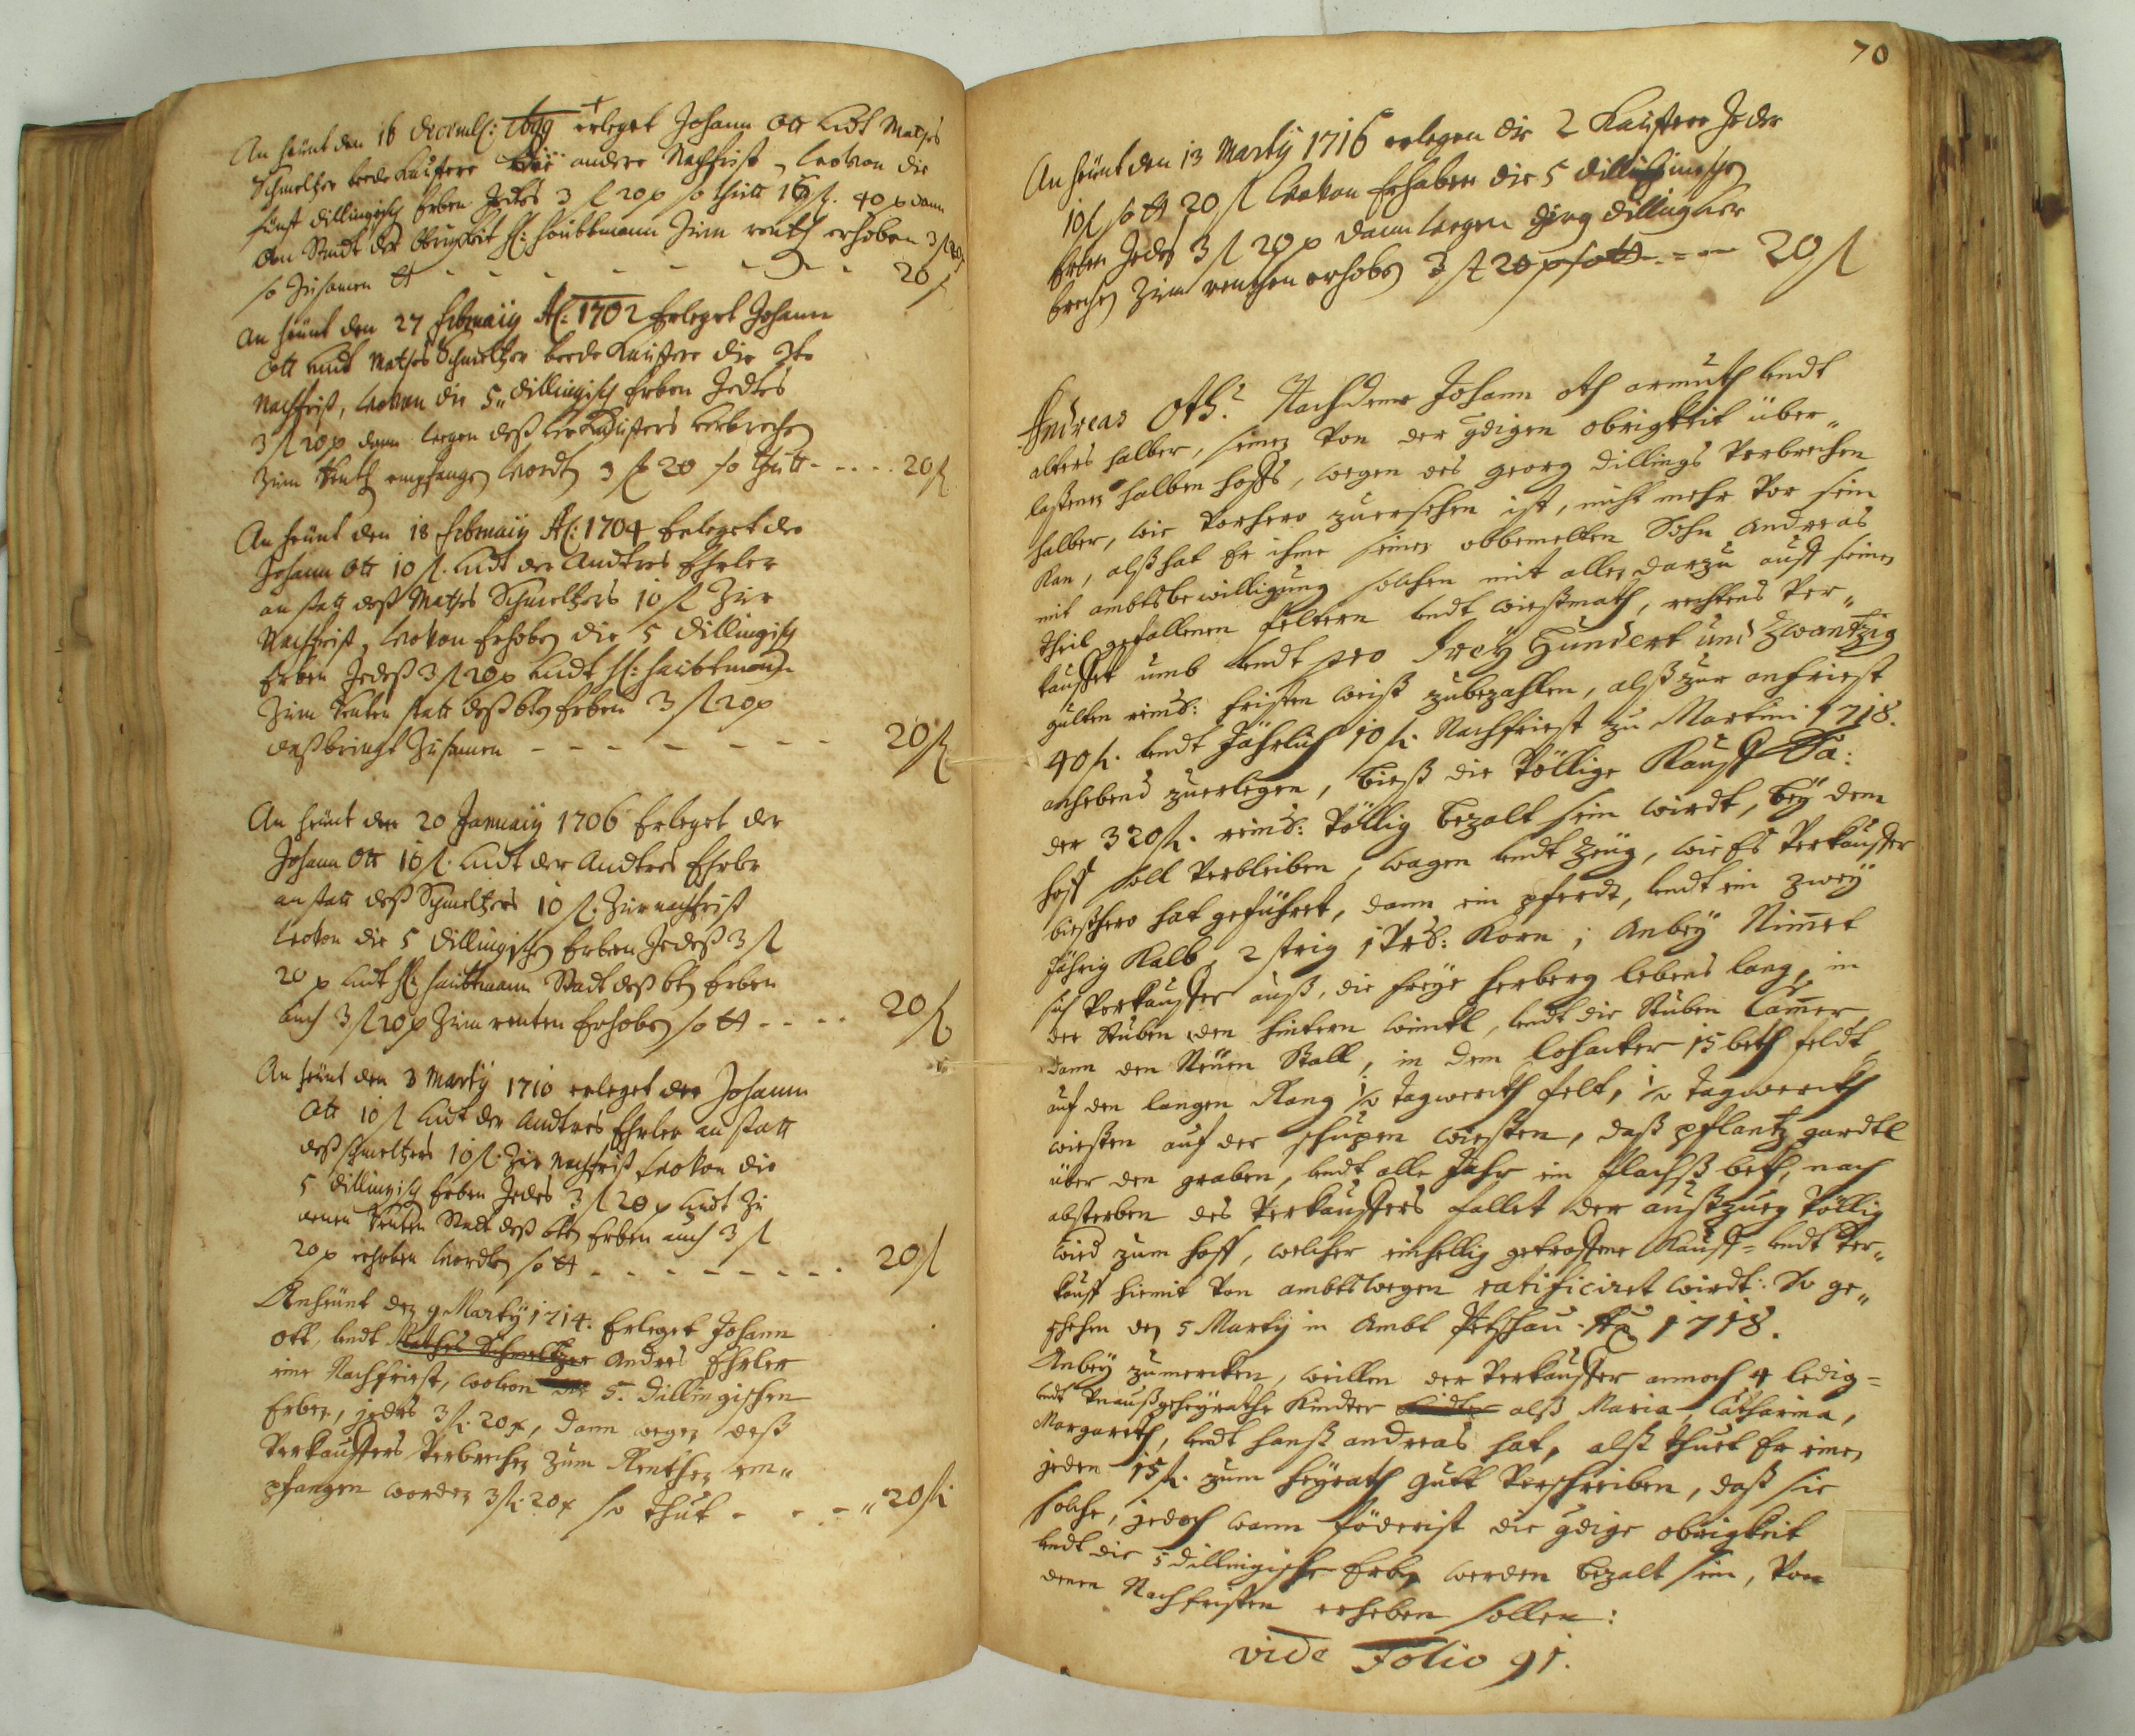 An heünt den 16 decembl: 1699 erleget Johann Ott undt Mathes
Schmeltzer beede Kauffere die andere Nachfrist, wovon die
fünff dillingisch Erben Jedes 3 fl 20 x so thuet 16 fl. 40 x dann
an Stadt der Obrigkeit H: Haubtmann Zum renth erhoben 3 fl 20 x
so Zusamen tt - - - - - - - 20 fl
An heünt den 27 Februarij Ao: 1702 Erleget Johann
Ott undt Mathes Schmeltzer beede Kauffere die 3te
Nachfrist, wovon die 5 dillingisch Erben Jedtes
3 fl 20 x dann wegen deß verkauffers verbrechen
Zum Renth empfangen worden 3 fl 20 so thuet - - - - 20 fl
An heünt den 18 Februarij Ao: 1704 Erleget der
Johann Ott 10 fl. undt der Andres Ehrler
an statt deß Mathes Schmeltzers 10 fl Zur
Nachfrist, wovon Erhoben die 5 dillingisch
Erben Jedeß 3 fl 20 x undt H: haubtmann
Zum Renten statt deß 6ten Erben 3 fl 20 x
deß bringt Zusamen - - - - - - - 20 fl
An heünt den 20 Januarij 1706 Erleget der
Johann Ott 10 fl. undt der Andtres Ehrler
an statt deß Schmeltzers 10 fl. Zur nachfrist
wovon die 5 dillingischen Erben Jedeß 3 fl
20 x undt H: haubtmann Stadt deß 6ten Erben
auch 3 fl 20 x Zum renten Erhoben so tt - - - - 20 fl
An heünt den 3 Martij 1710 erleget der Johann
Ott 10 fl undt der Andtres Ehrler an statt
deß schmeltzers 10 fl. Zur Nachfrist wovon die
5 dillingisch Erben Jedes 3 fl 20 x undt Zu
denen Renten Stadt deß 6ten Erben auch 3 fl
20 x erhoben worden so tt - - - - - - - - 20 fl
An heünt den 9 Martij 1714. Erleget Johann
Ott, undt Mathes Schmeltzer Andres Ehrler
eine Nachfriest, wovon die 5. dillingischen
Erben, jedes 3 fl. 20 x, dann wegen deß
Verkauffers Verbrechen zum Renthen em„
pfangen worden 3 fl. 20 x so thut - - - „ 20 fl.
70
An heünt den 13 Martij 1716 erlegen die 2 Kauffere Jeder
10 fl so tt 20 fl wovon Erhaben die 5 dillingische
Erben Jedes 3 fl 20 x dann wegen Görg dillings ver
brechen Zum renthen erhoben 3 fl 20 x so tt - - - 20 fl
Andreas Oth. Nachdeme Johann oth armuth undt
alters halber, seinen von der gdigen obrigkeit über„
lassenen halben hoffs, wegen des georg dillings verbrechen
halber, wie vorhero zuersehen ist, nicht mehr vor sein
Kan, alß hat Er ihme seinen obbemelten Sohn Andreas
mit ambtsbewilligung solchen mit allen darzu auff seinen
theil gefallenen feltern undt wießmath, rechtens ver„
kauffet umb undt pro Drey Hundert und Zwantzig
gulten reins: fristen weiß zubezahlen, alß zur anfriest
40 fl. undt Jährlich 10 fl. Nachfriest zu Martini 1718.
anhebend zuerlegen, bieß die völlige Kauff Sa:
der 320 fl. reins: völlig bezalt sein wirdt, bey dem
hoff soll verbleiben, wagen undt Zeüg, wie Es verkauffer
bießhero hat geführet, dann ein pferdt, undt ein zwey
jährig Kalb, 2 strig 1 vrs: Korn; Anbey Nimet
sich verkauffer auß, die freye herberg lebens lang, in
der Stuben den hintern winkl, undt die Stuben Camer,
dann den Neüen Stall, in dem lohacker 15 beth feldt
auf den langen Rang ½ tagwerckh felt, ½ tagwerckh
wiesten auf der schupen wiesten, daß pflantz gardtl
über den graben, undt alle Jahr ein flachß beth, nach
absterben des verkauffers fallet der außzueg völlig
wird zum hoff, welcher einhellig getroffene Kauff= undt ver„
kauff hiemit von ambtswegen ratificiret wirdt. So ge„
schehen den 5 Martij in Ambt Petschau Ao 1718.
Anbey zumercken, weillen der verkauffer annoch 4 ledig=
undt unaußgeheyrathe Kinder alß Maria, Catharina,
Margareth, undt hanß andreas hat, alß thuet Er einen
jeden 15 fl. zum heyrath gutt verschreiben, daß sie
solche, jedoch wann föderist die gdige obrigkeit
undt die 5 dillingische Erben werden bezalt sein, von
denen Nachfristen erheben sollen:
vide Folio 91.